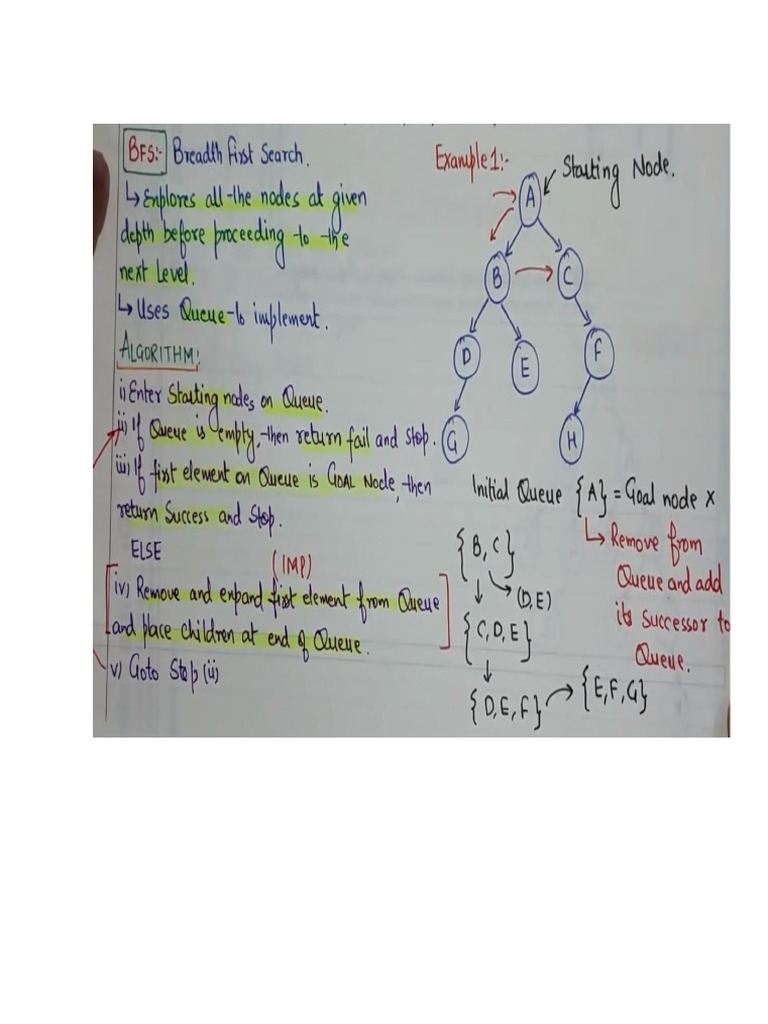 BFS:- Breadth First Search.
↳ Explores all the nodes at given
depth before proceeding to the
next Level.
↳ Uses Queue to implement.
ALGORITHM:
i) Enter Starting nodes on Queue.
ii) If Queue is empty, then return fail and Stop.
iii) If first element on Queue is GOAL Node, then
return Success and Stop.
ELSE
(IMP)
iv) Remove and expand first element from Queue
and place children at end of Queue.
v) Goto Step (ii)
Example 1:-
Starting Node.
A
B
C
D
E
F
G
H
Initial Queue {A} = Goal node X
↳ Remove from
Queue and add
its Successor to
Queue.
{B, C}
(D, E)
{C, D, E}
{D, E, F}
{E, F, G}